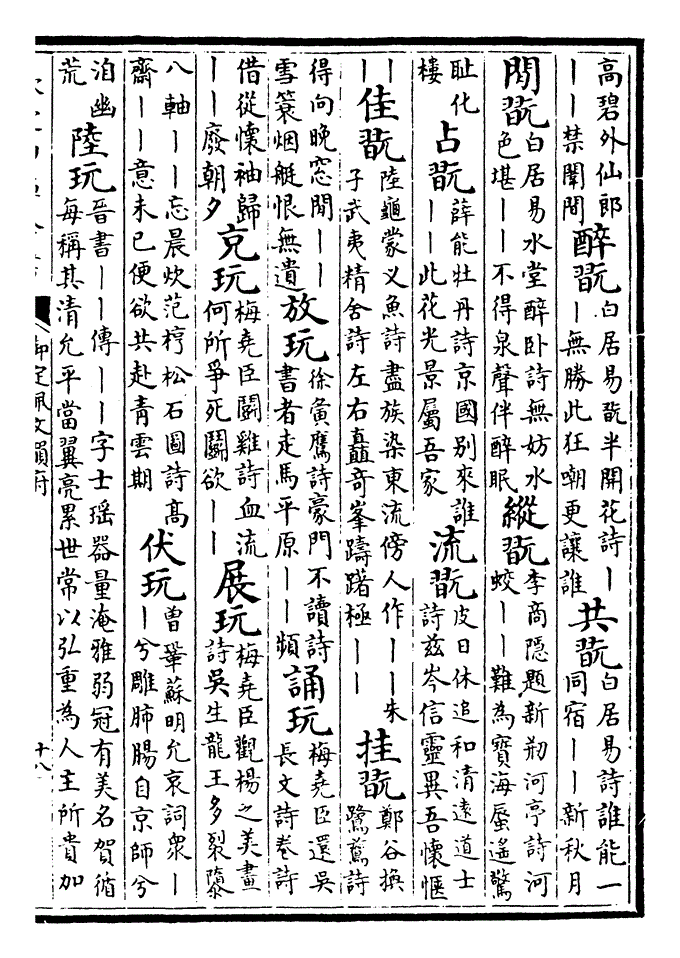 高碧外仙郎——禁闈間 醉翫 白居易翫半開花詩——無勝此狂嘲更讓誰 共翫 白居易詩誰能一同宿——新秋月
閒翫 白居易水堂醉卧詩無妨水色堪——不得泉聲伴醉眠 縱翫 李商隱題新刱河亭詩河蛟——難為寶海蜃遙驚
耻化樓 占翫 薛能牡丹詩京國別來誰——此花光景屬吾家 流翫 皮日休追和清遠道士詩兹岑信靈異吾懷愜
—— 佳翫 陸龜蒙义魚詩盡族染東流傍人作——朱子武夷精舍詩左右矗奇峯躊躇極—— 挂翫 鄭谷換鷺鷥詩
得向晚窓閒——雪簑烟艇恨無遺 放玩 徐夤鷹詩豪門不讀詩書者走馬平原——頻 誦玩 梅堯臣還吳長文詩卷詩
借從懷袖歸——廢朝夕 克玩 梅堯臣鬬雞詩血流何所爭死鬬欲—— 展玩 梅堯臣觀楊之美畫詩吳生龍王多裂隳
八軸——忘晨炊范梈松石圖詩高齋——意未已便欲共赴青雲期 伏玩 曾鞏蘇明允哀詞衆——兮雕肺腸自京師兮
洎幽荒 陸玩 晉書——傳——字士瑶器量淹雅弱冠有美名賀循每稱其清允平當翼亮累世常以弘重為人主所貴加
御定佩文韻府
十八